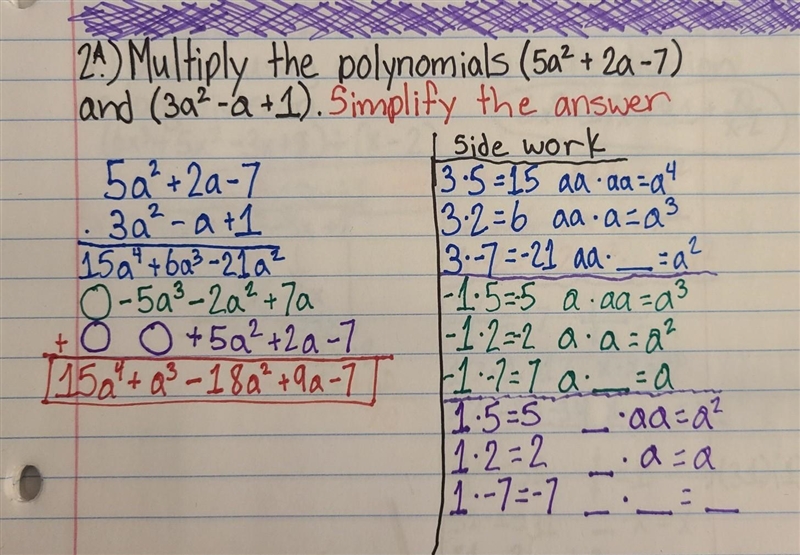 2A.) Multiply the polynomials (5a² + 2a - 7)
and (3a² - a + 1). Simplify the answer
5a² + 2a - 7
· 3a² - a + 1
15a⁴ + 6a³ - 21a²
O - 5a³ - 2a² + 7a
+ O O + 5a² + 2a - 7
15a⁴ + a³ - 18a² + 9a - 7
Side work
3 · 5 = 15 aa · aa = a⁴
3 · 2 = 6 aa · a = a³
3 · -7 = -21 aa · __ = a²
-1 · 5 = -5 a · aa = a³
-1 · 2 = -2 a · a = a²
-1 · -7 = 7 a · __ = a
1 · 5 = 5 _ · aa = a²
1 · 2 = 2 _ · a = a
1 · -7 = -7 _ · __ = __